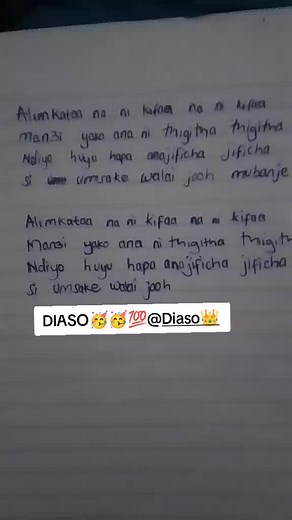 Alimkataa na ni kifaa na ni kifaa
Manzi yako ana ni thigitha thigitha
Ndiyo huyu hapa anajificha jificha
si umsake walai jooh mubanje
Alimkataa na ni kifaa na ni kifaa
Manzi yako ana ni thigitha thigith
Ndiyo huyu hapa anajificha jificha
si umsake walai jooh
DIASO🥳🥳💯@Diaso👑